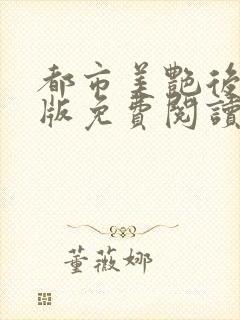 都市美艷後
版免費閱讀
董薇娜